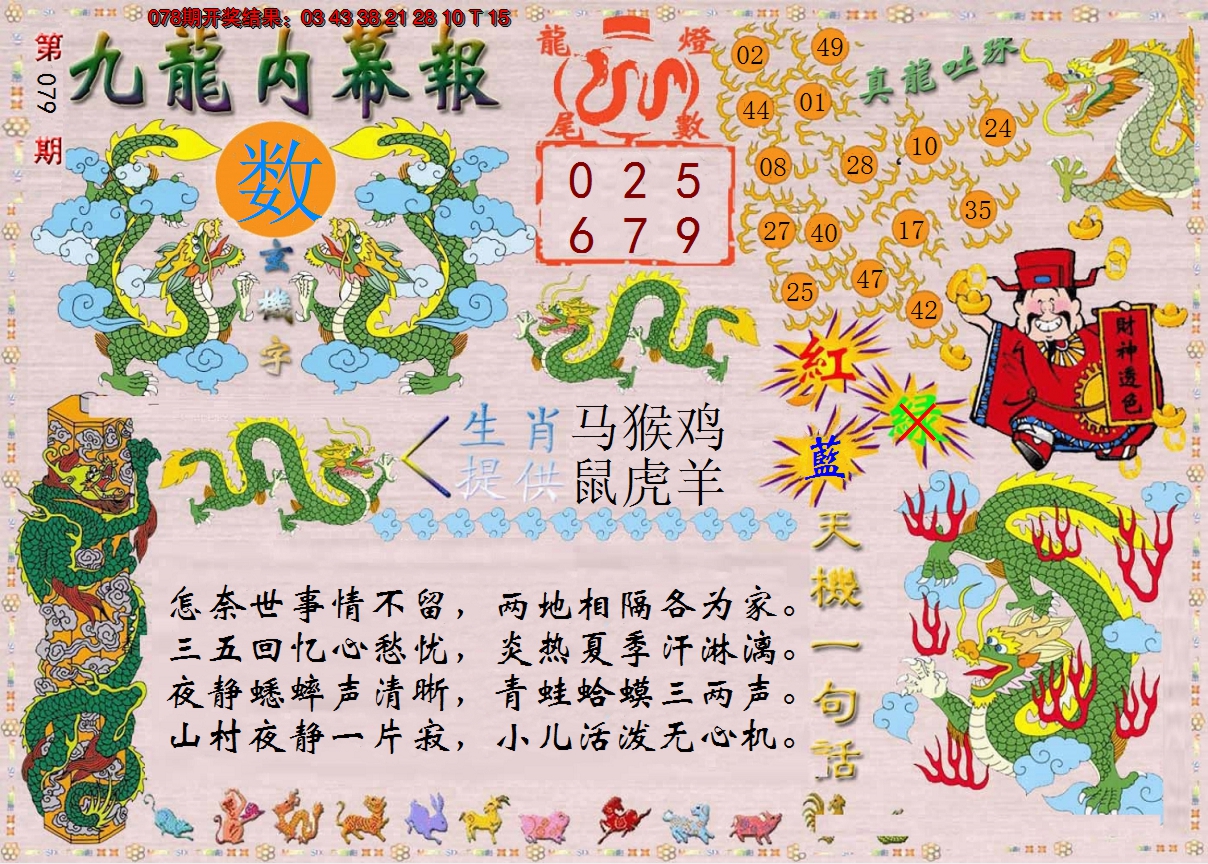 078期开奖结果：03 43 38 21 28 10 T 15
第079期
九龍内幕報
数
玄機字
龍燈
尾數
0 2 5
6 7 9
真龍吐珠
02 49
44 01
08 28 10 24
27 40 17 35
25 47 42
財神透色
紅
绿
藍
生肖 马猴鸡
提供 鼠虎羊
怎奈世事情不留，两地相隔各为家。
三五回忆心愁忧，炎热夏季汗淋漓。
夜静蟋蟀声清晰，青蛙蛤蟆三两声。
山村夜静一片寂，小儿活泼无心机。
天機一句話